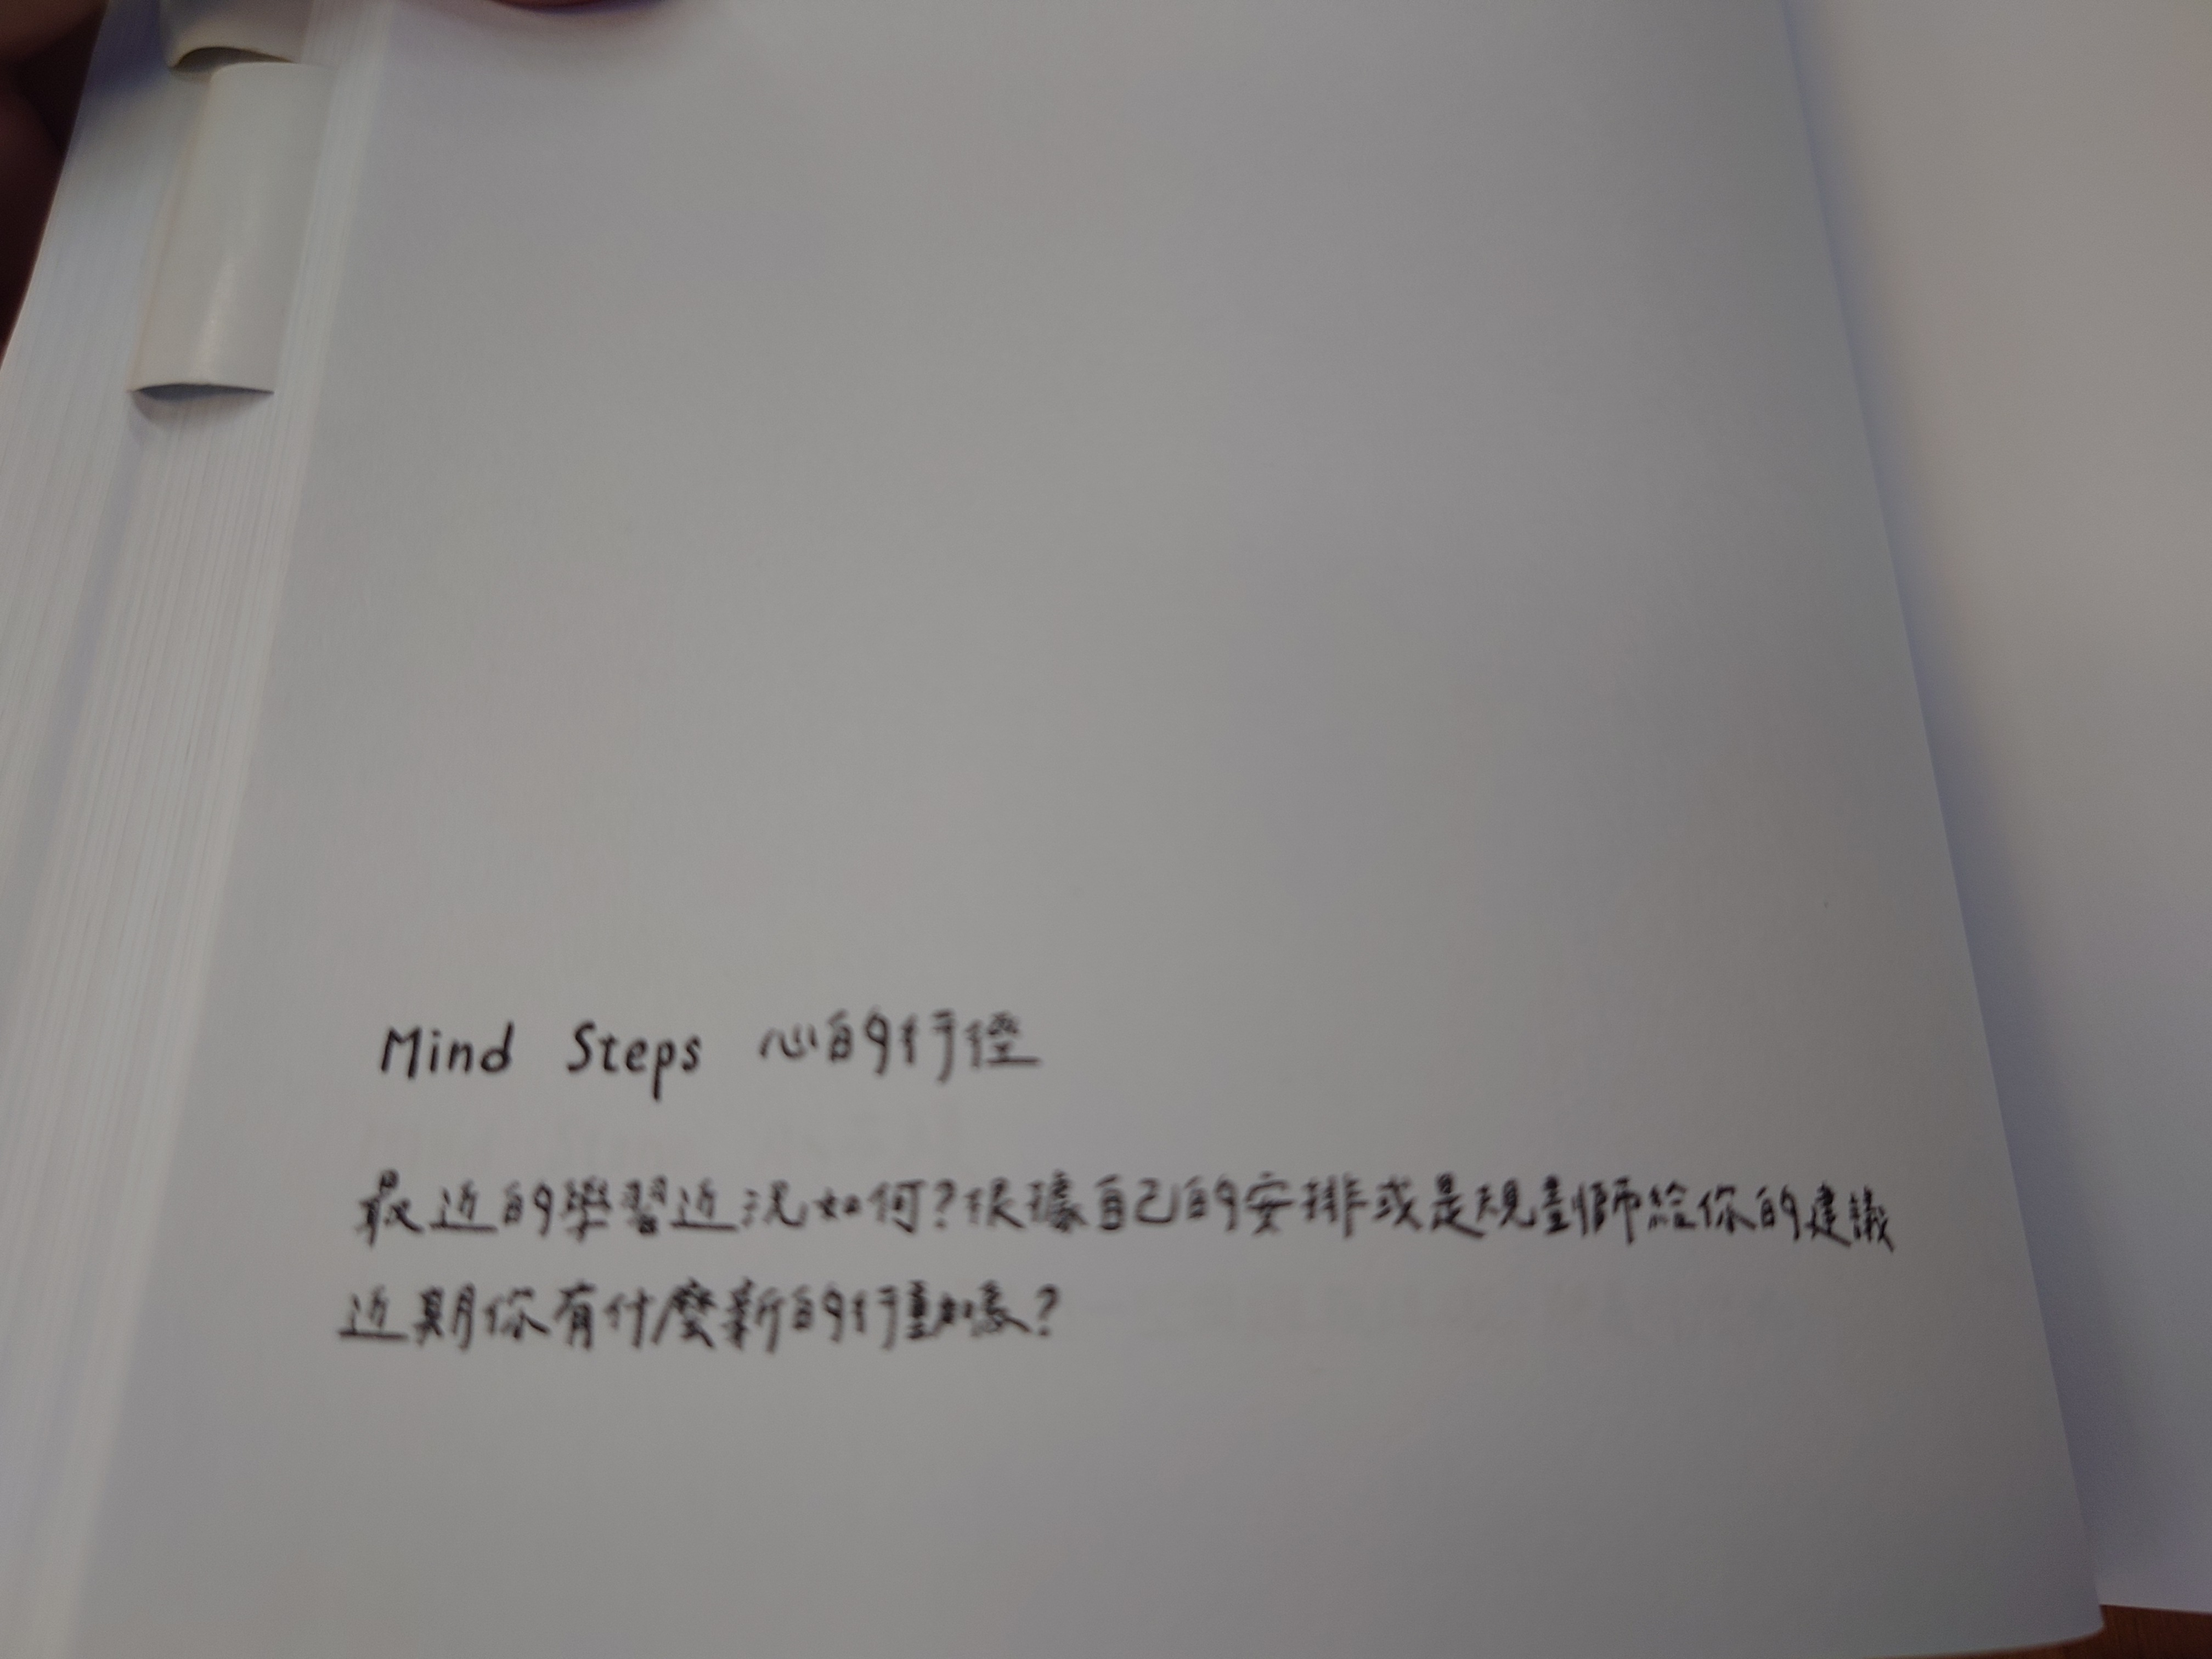 Mind Steps 心的行徑
最近的學習近況如何?根據自己的安排或是規劃師給你的建議
近期你有什麼新的行動嗎?